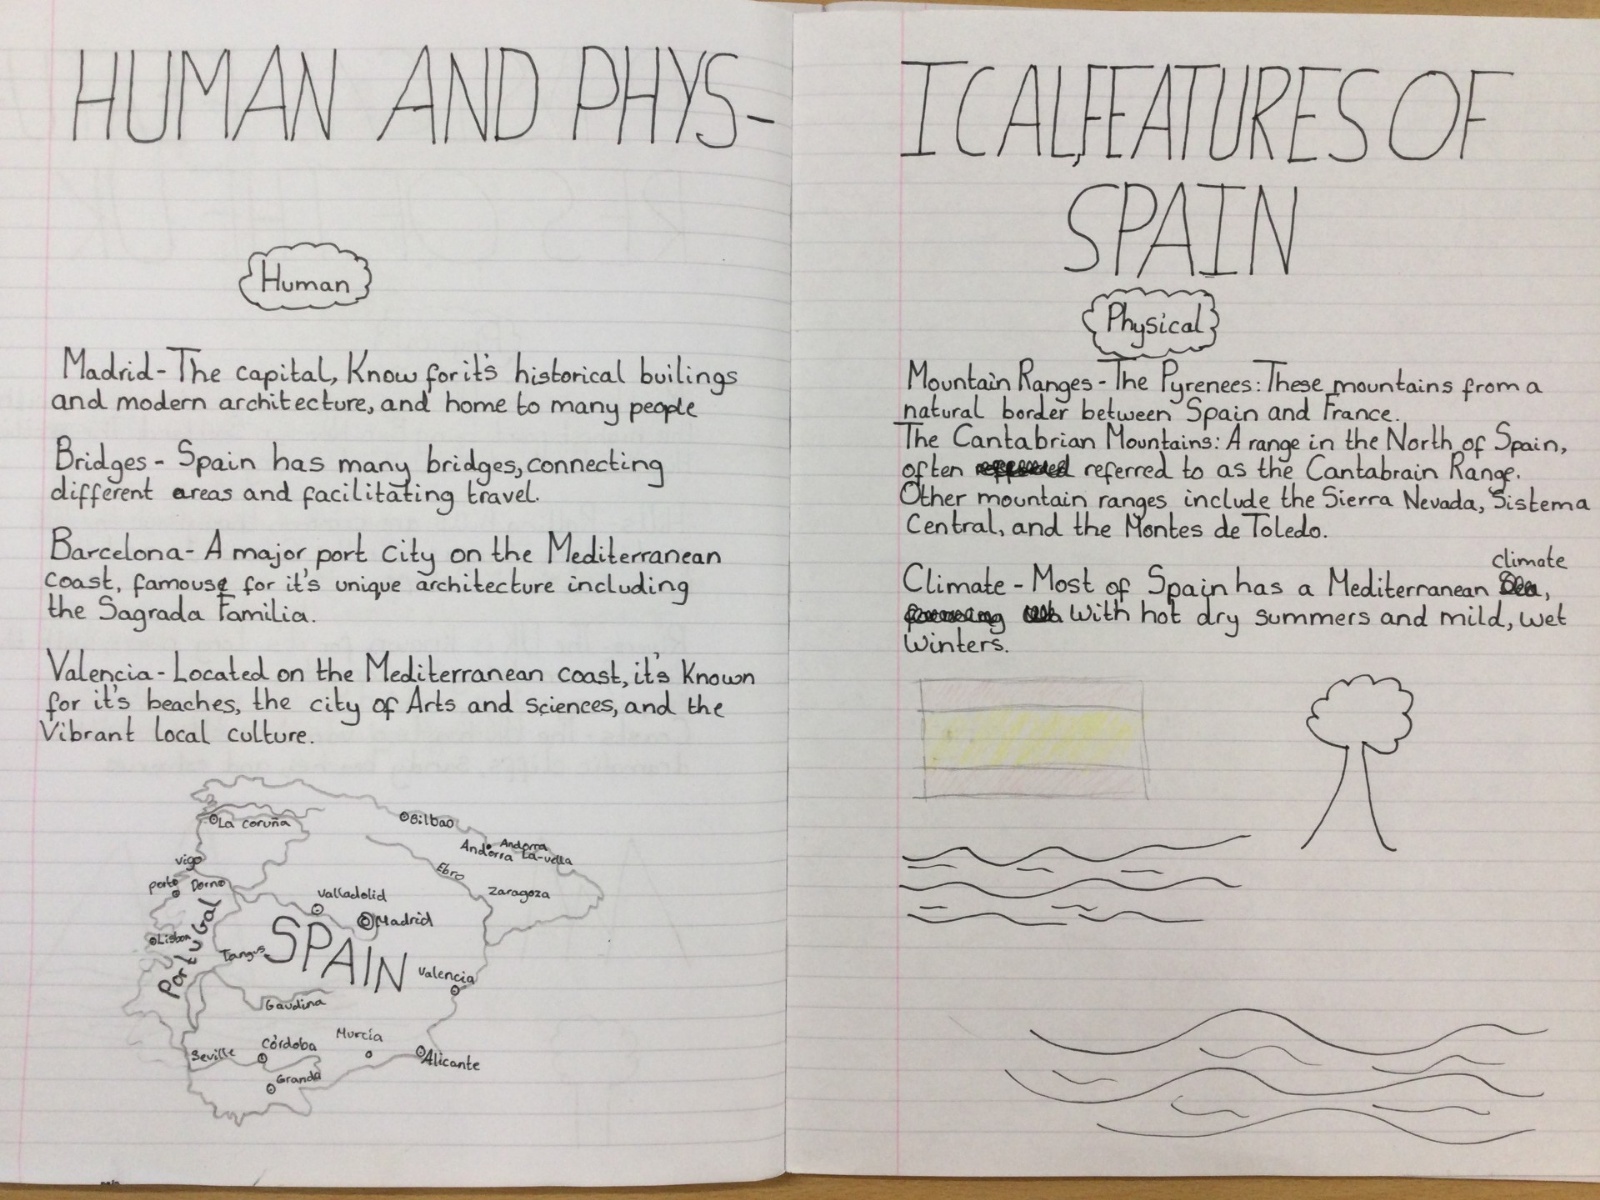 HUMAN AND PHYS-
Human
Madrid - The capital, Know for it's historical builings
and modern architecture, and home to many people
Bridges - Spain has many bridges, connecting
different areas and facilitating travel.
Barcelona - A major port city on the Mediterranean
coast, famouse for it's unique architecture including
the Sagrada Familia.
Valencia - Located on the Mediterranean coast, it's Known
for it's beaches, the city of Arts and sciences, and the
Vibrant local culture.
La coruña
Bilbao
Andorra
Andorra
La-vella
Vigo
Ebro
Porto
Dorno
Zaragoza
Valladolid
Madrid
Portugal
Lisbon
Tangus
SPAIN
Valencia
Gaudina
Seville
Córdoba
Murcía
Alicante
Granda
ICAL,FEATURES OF
SPAIN
Physical
Mountain Ranges - The Pyrenees: These mountains from a
natural border between Spain and France.
The Cantabrian Mountains: A range in the North of Spain,
often referred to as the Cantabrain Range.
Other mountain ranges include the Sierra Nevada, Sistema
Central, and the Montes de Toledo.
climate
Climate - Most of Spain has a Mediterranean Sea,
with hot dry summers and mild, wet
Winters.